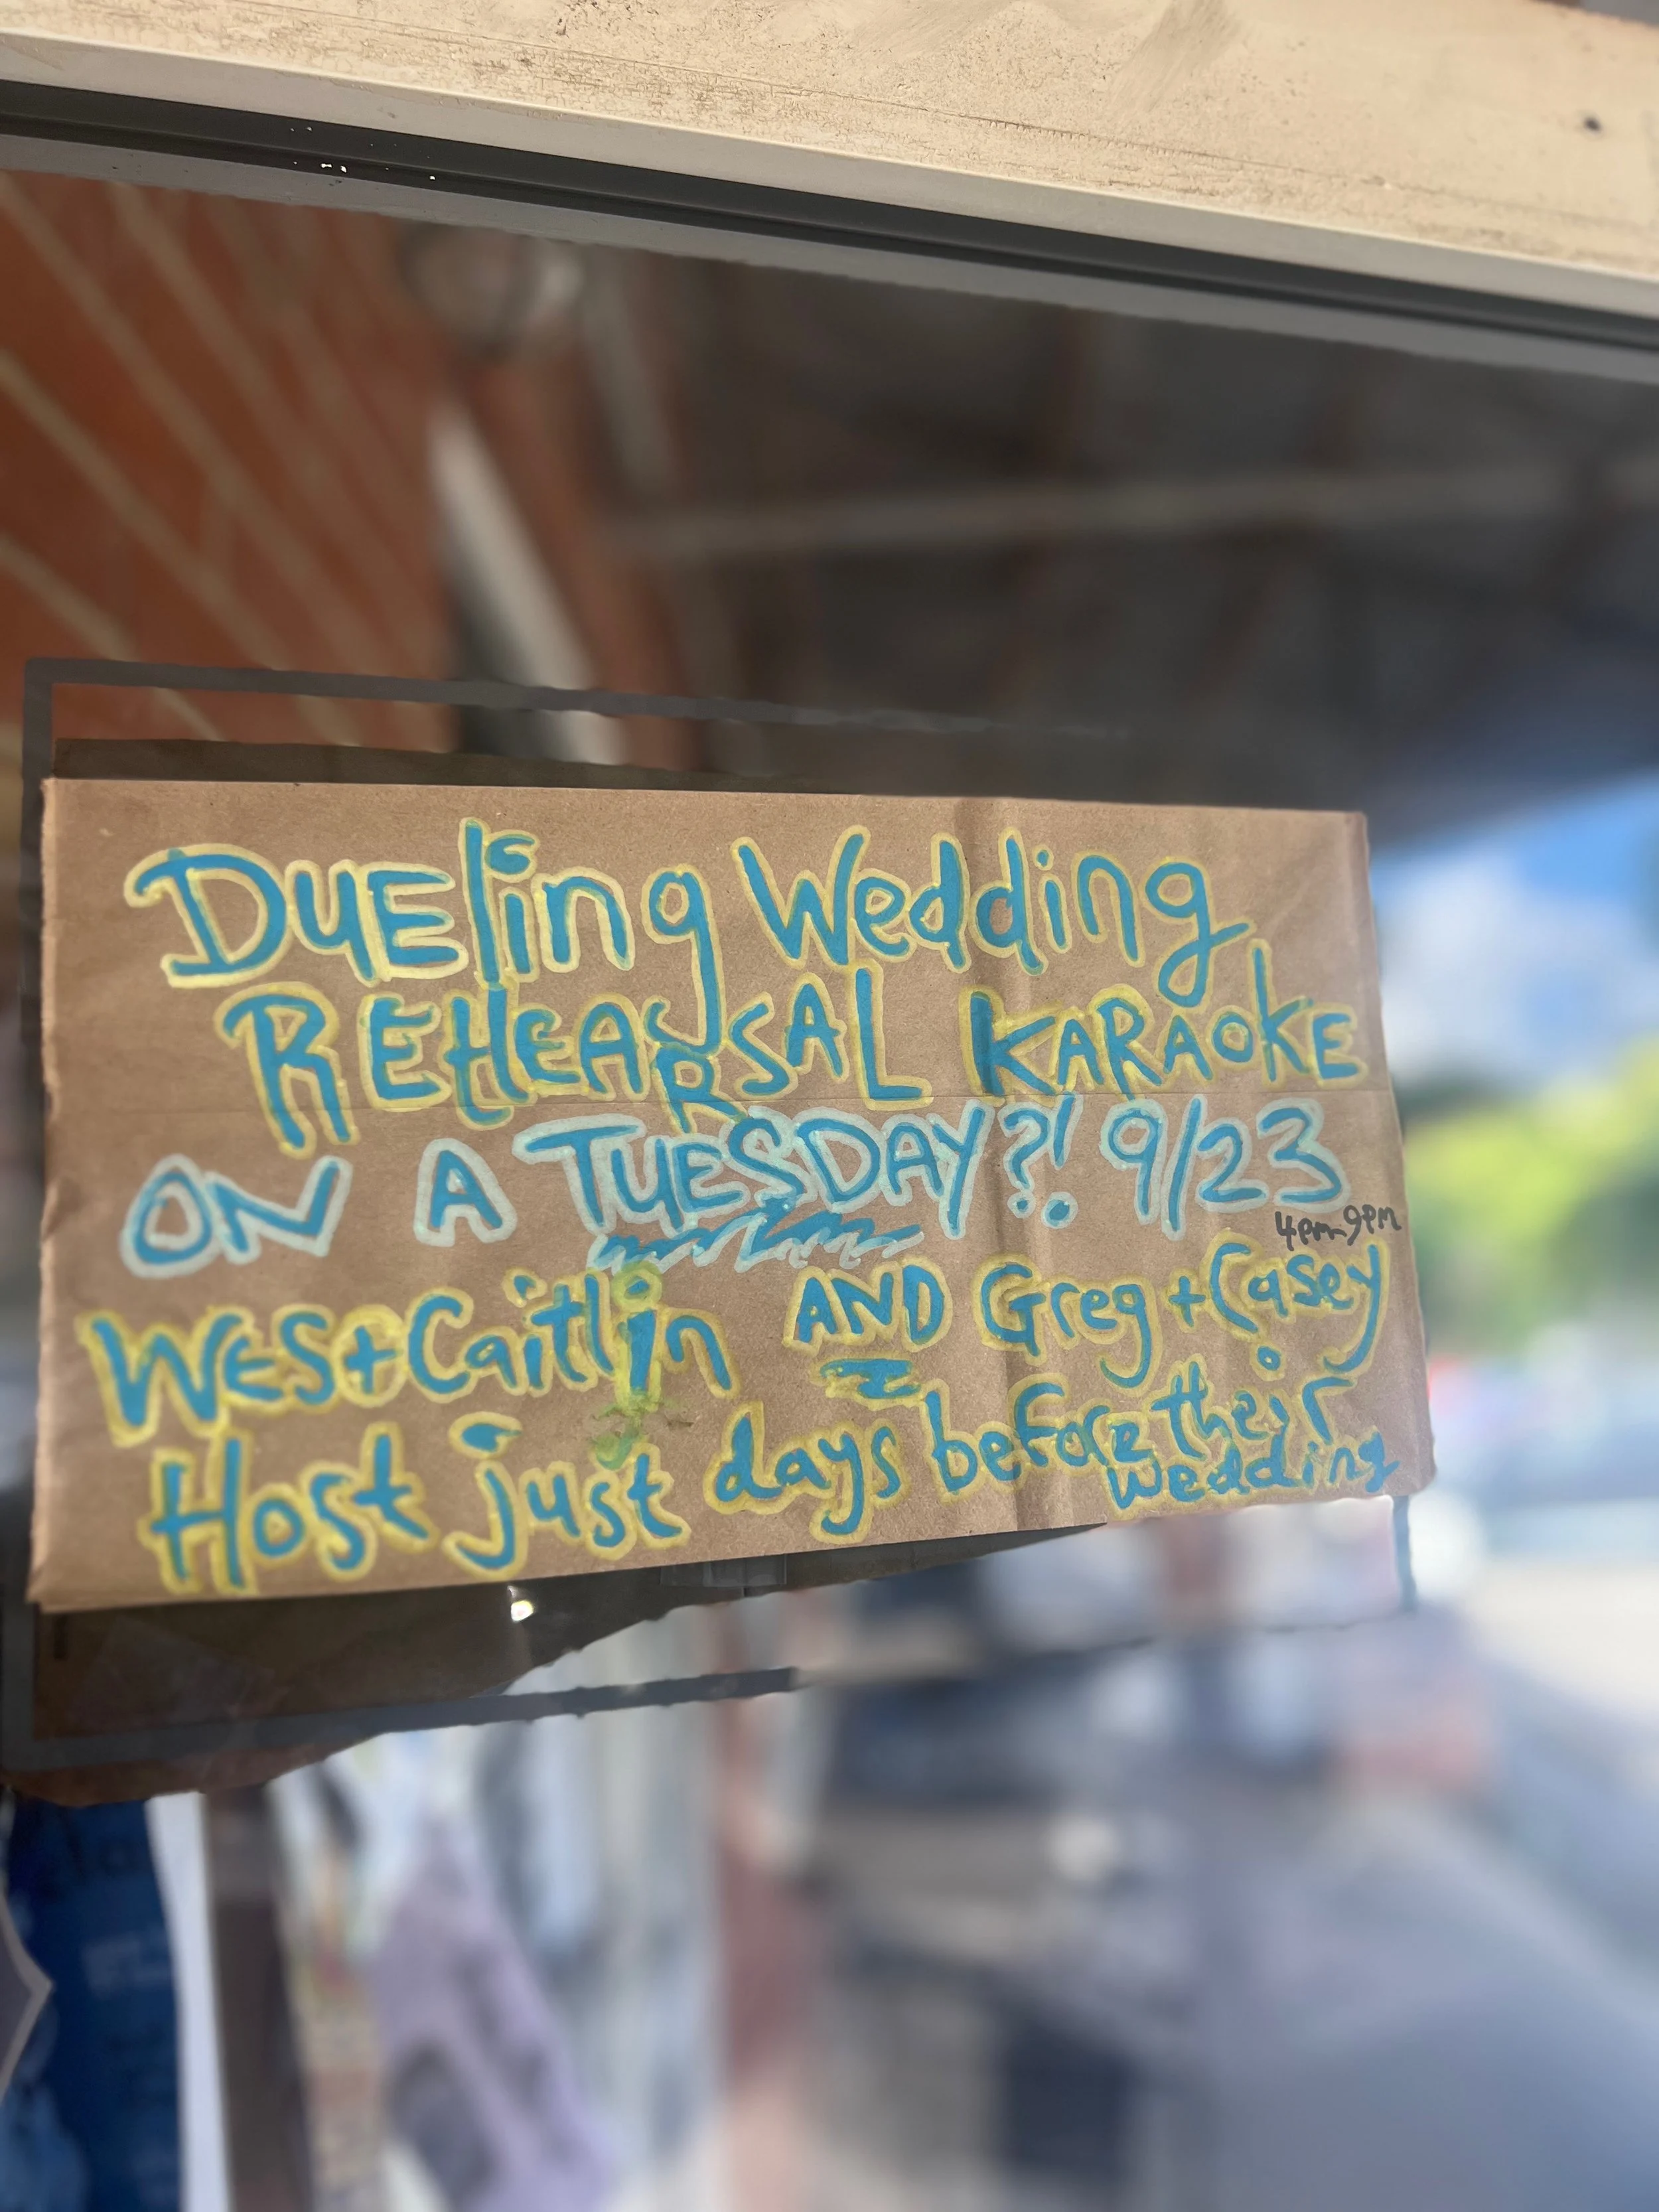 DUEling Wedding
REHEARSAL KARAOKE
ON A TUESDAY?! 9/23
4pm-9pm
WES+Caitlin AND Greg+Casey
Host just days before their
wedding